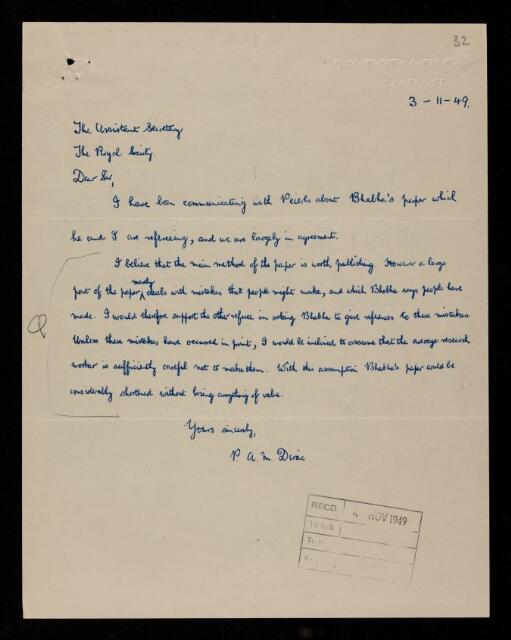 32
7, CAVENDISH AVENUE,
CAMBRIDGE.
3 - 11 - 49.
The Assistant Secretary
The Royal Society.
Dear Sir,
I have been communicating with Peierls about Bhabha's paper which
he and I are refereeing, and we are largely in agreement.
I believe that the main method of the paper is worth publishing. However a large
merely
part of the paper deals with mistakes that people might make, and which Bhabha says people have
made. I would therefore support the other referee in asking Bhabha to give references to these mistakes.
Unless these mistakes have occurred in print, I would be inclined to assume that the average research
worker is sufficiently careful not to make them. With this assumption Bhabha's paper could be
considerably shortened without losing anything of value.
Yours sincerely,
P. A. M. Dirac
RECD. 4 NOV 1949